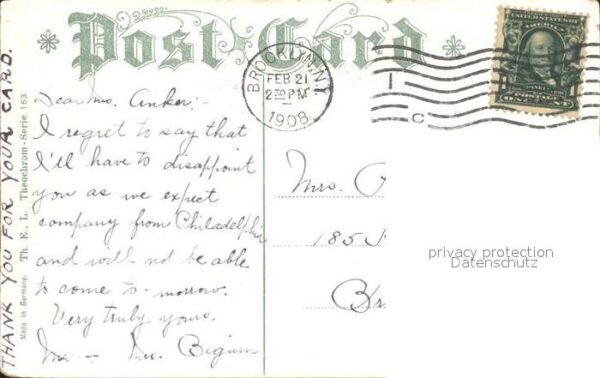 Post Card
BROOKLYN, N.Y.
FEB 21
2 30 PM
1908
C
THANK YOU FOR YOUR CARD.
Made in Germany. Th. E. L. Theochrom-Serie 163
Dear Mrs. Anker:-
I regret to say that
I'll have to disappoint
you as we expect
company from Philadelphia
and will not be able
to come to-morrow.
Very truly yours.
Mrs.
185
Br
privacy protection
Datenschutz